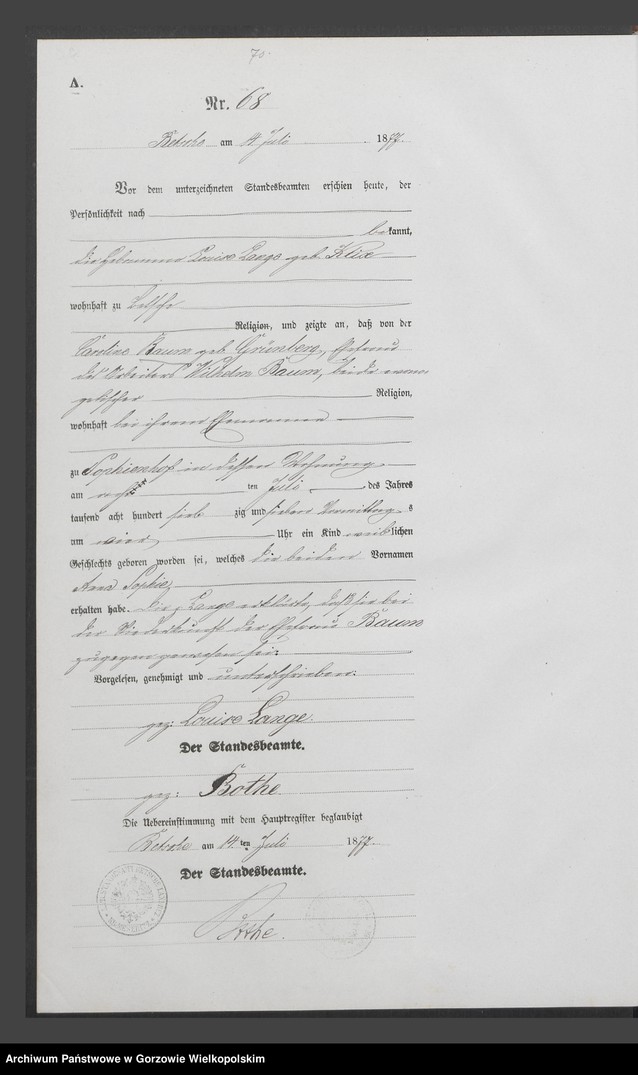 70
A.
Nr. 68
Betsche am 14 Juli 1877.
Vor dem unterzeichneten Standesbeamten erschien heute, der
Persönlichkeit nach
bekannt,
die Hebamme Louise Lange geb.
wohnhaft zu Betsche
Religion, und zeigte an, daß von der
Caroline Baum geb. Grünberg, Ehefrau
des Arbeiters Wilhelm Baum, beide evan
gelischer Religion,
wohnhaft bei ihrem Ehemanne
zu Sophienhof in dessen Wohnung
am ten Juli des Jahres
tausend acht hundert sieb zig und sieben Vormittag s
um vier Uhr ein Kind weiblichen
Geschlechts geboren worden sei, welches die beiden Vornamen
Anna Sophie,
erhalten habe. Die Lange erklärte, daß sie bei
der Niederkunft der Ehefrau Baum
zugegen gewesen sei.
Vorgelesen, genehmigt und unterschrieben.
gez: Louise Lange.
Der Standesbeamte.
gez: Bothe
Die Uebereinstimmung mit dem Hauptregister beglaubigt
Betsche am 14. ten Juli 1877.
Der Standesbeamte.
Bothe.
Archiwum Państwowe w Gorzowie Wielkopolskim